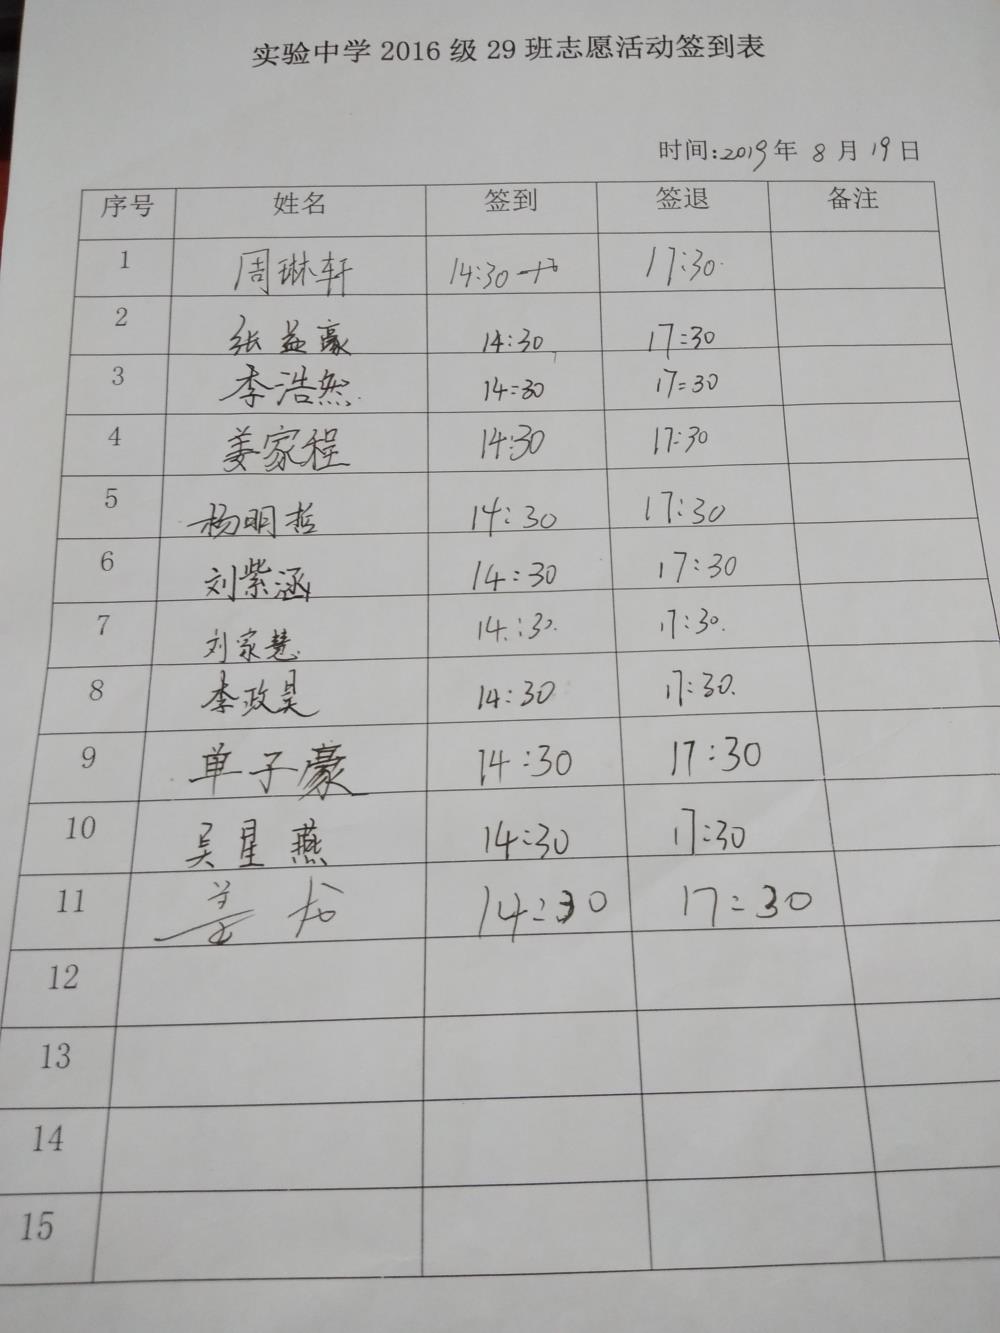 实验中学2016级29班志愿活动签到表
时间:2019年8月19日
序号 姓名 签到 签退 备注
1 周琳轩 14:30 17:30
2 张益豪 14:30 17:30
3 李浩然 14:30 17:30
4 姜家程 14:30 17:30
5 杨明哲 14:30 17:30
6 刘紫涵 14:30 17:30
7 刘家慧 14:30 17:30
8 李政昊 14:30 17:30
9 单子豪 14:30 17:30
10 吴星燕 14:30 17:30
11 14:30 17:30
12
13
14
15